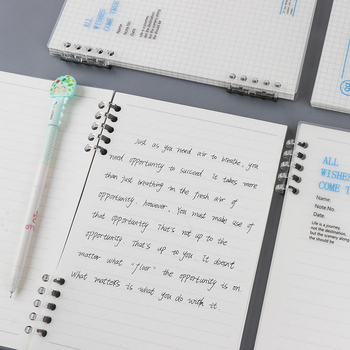 ALL
WISHES
COME TRUE
Name:
Note.No:
Date:
Just as you need air to breathe, you
need opportunity to succeed. It takes more
than just breathing in the fresh air of
opportunity, however. You must make use of
that opportunity. That's not up to the
opportunity. That's up to you. It doesn't
matter what "floor" the opportunity is on.
What matters is what you do with it.
ALL
WISHES
COME T
Name:
Note.No:
Date:
Life is a journey,
not the destination,
but the scenery along
the should be